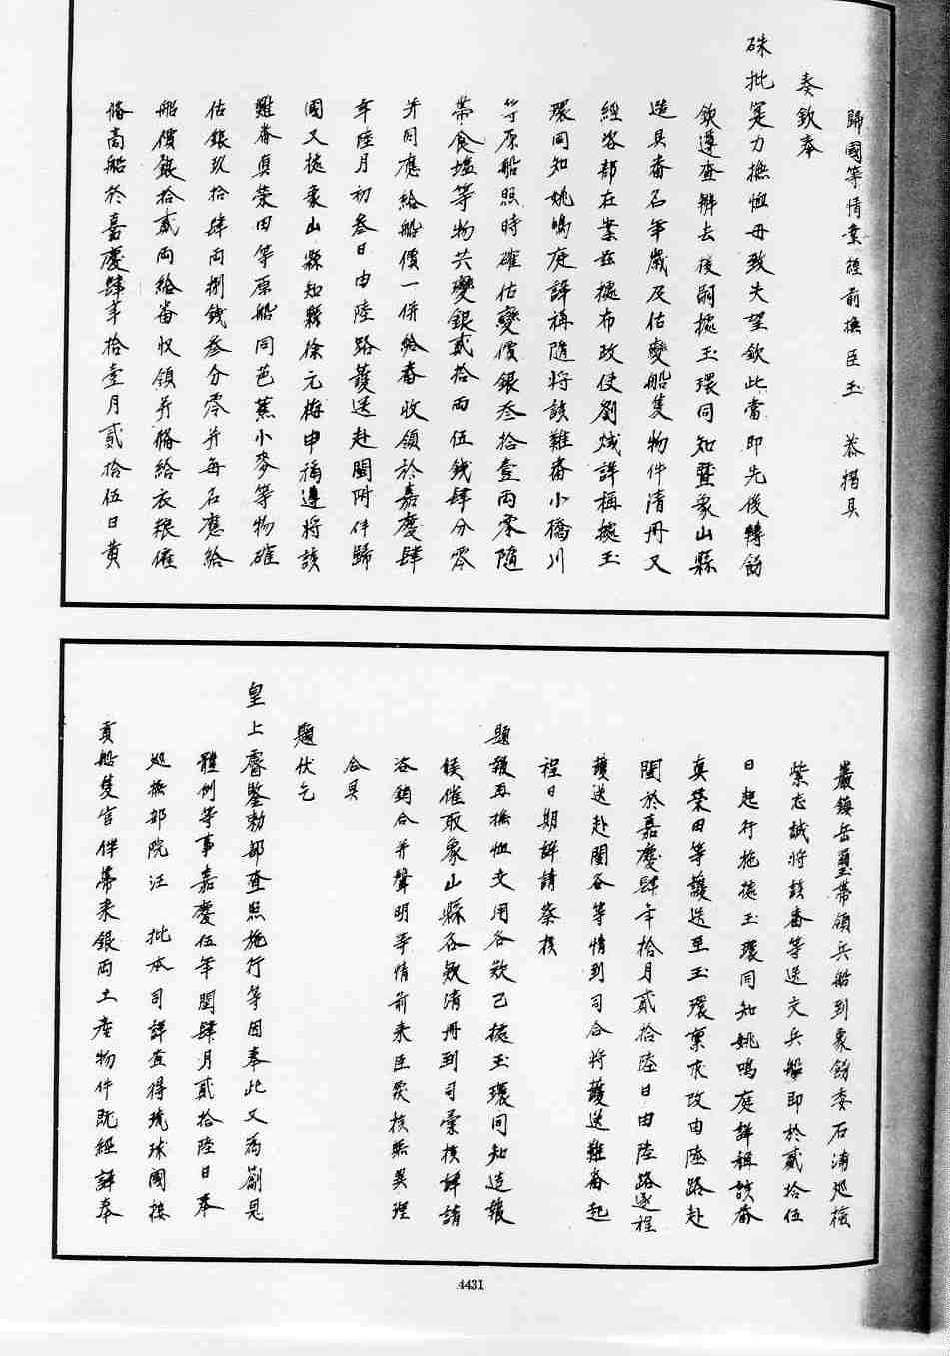 歸國等情業經前撫臣玉　恭摺具
奏欽奉
硃批寔力撫恤毋致失望欽此當即先後轉飭
欽遵查辦去後嗣據玉環同知暨象山縣
造具番名年歲及估變船隻物件清冊又
經咨部在案茲據布政使劉烒詳稱據玉
環同知姚鳴庭詳稱隨將該難番小橋川
等原船照時確估變價銀叁拾壹兩零隨
帶食塩等物共變銀貳拾兩伍錢肆分零
并同應給船價一併給番收領於嘉慶肆
年陸月初叁日由陸路護送赴閩附伴歸
國又據象山縣知縣徐元梅申稱遵將該
難番真榮田等原船同芭蕉小麥等物確
估銀玖拾肆兩捌錢叁分零并每名應給
船價銀拾貳両給番收領并賞給衣粮僱
備商船於嘉慶肆年拾壹月貳拾伍日黄
巖鎮岳璽帶領兵船到象飭委石浦巡檢
柴志誠將該番等送交兵船即於貳拾伍
日起行施據玉環同知姚鳴庭詳稱該番
真榮田等護送至玉環稟求改由陸路赴
閩於嘉慶肆年拾月貳拾陸日由陸路逐程
護送赴閩各等情到司合將護送難番起
程日期詳請察核
題報再撫恤支用各欵已據玉環同知造報
候催取象山縣各欵清冊到司彙核詳請
咨銷合并聲明等情前來臣察核無異理
合具
題伏乞
皇上睿鑒勅部查照施行等因奉此又為劄見
體例等事嘉慶伍年閏肆月貳拾陸日奉
巡撫部院汪　批本司詳查得琉球國接
貢船隻官伴帶來銀両土產物件既經詳奉
4431